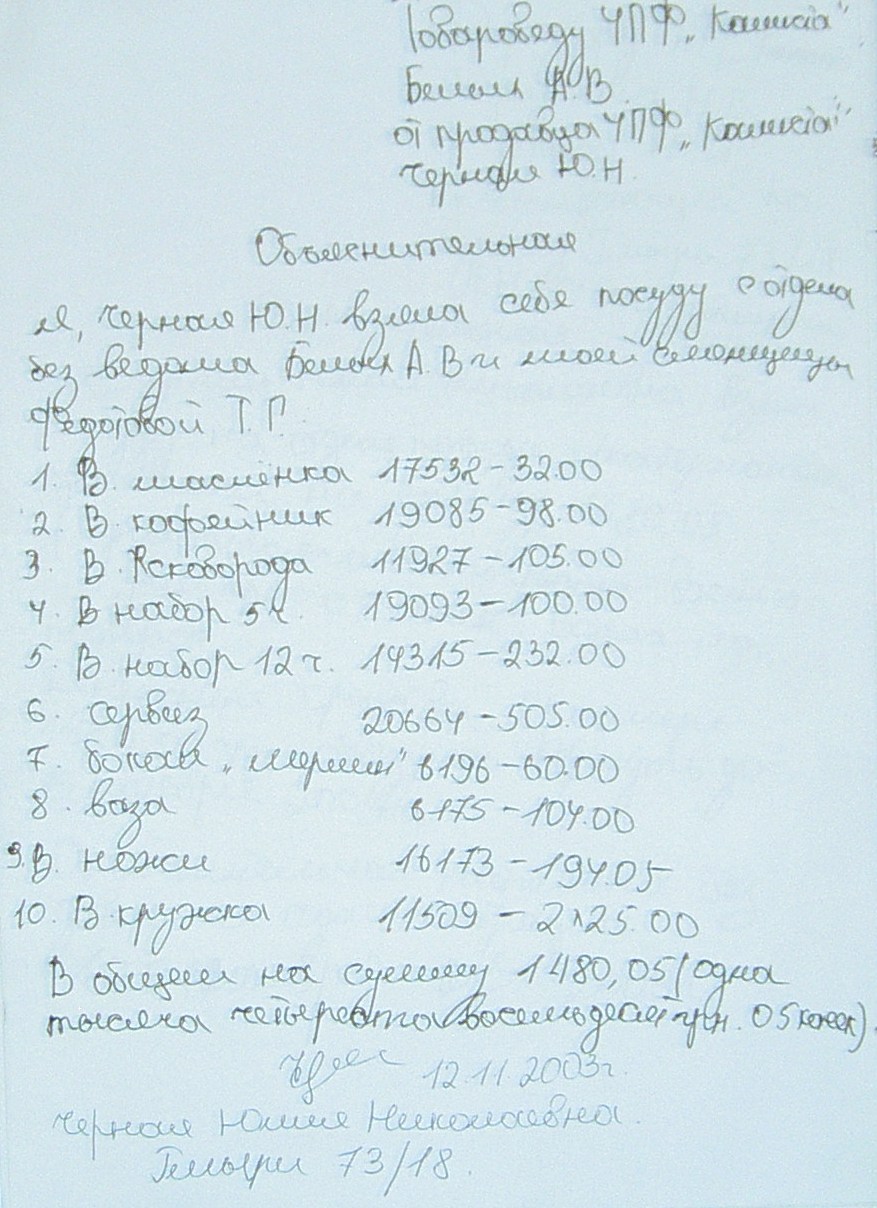 Товароведу ЧПФ „Камкія"
Белых А.В.
от продавца ЧПФ „Камкія"
Черная Ю.Н.
Объяснительная
Я, Черная Ю.Н. взяла себе посуду с отдела
без ведома Белых А.В и моей сменщицы
Федотовой Т.Г.
1. В. маслёнка 17532-32.00
2. В. кофейник 19085-98.00
3. В. сковорода 11927-105.00
4. В набор 5 ч. 19093-100.00
5. В. набор 12 ч. 14315-232.00
6. сервиз 20664-505.00
7. бокал „мерин" 6196-60.00
8. ваза 6175-104.00
9. В. ножи 16173-194.05
10. В. кружка 11509 - 2х25.00
В общем на сумму 1480,05 (одна
тысяча четыреста восемьдесят грн. 05 копеек).
12.11.2003г.
Черная Юлия Николаевна.
73/18.